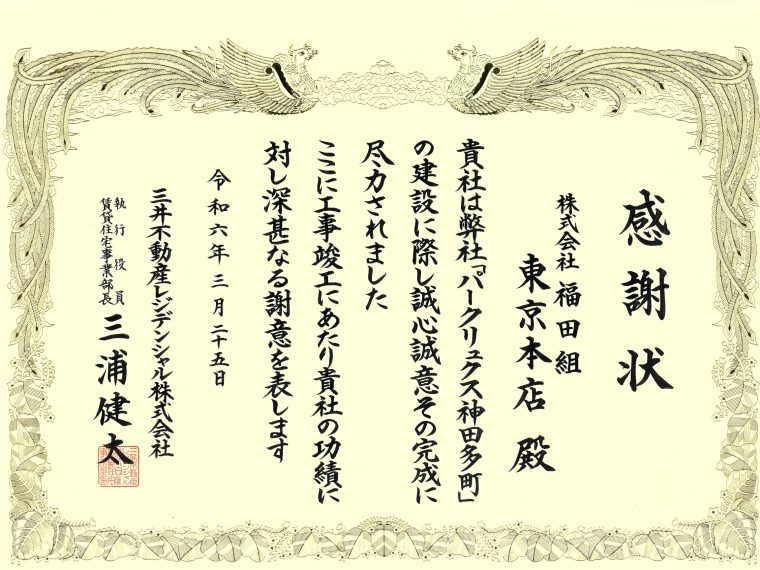 感謝状
株式会社 福田組
東京本店 殿
貴社は弊社「パークリュクス神田多町」
の建設に際し誠心誠意その完成に
尽力されました
ここに工事竣工にあたり貴社の功績に
対し深甚なる謝意を表します
令和六年三月二十五日
三井不動産レジデンシャル株式会社
執行役員
賃貸住宅事業部長
三浦健太